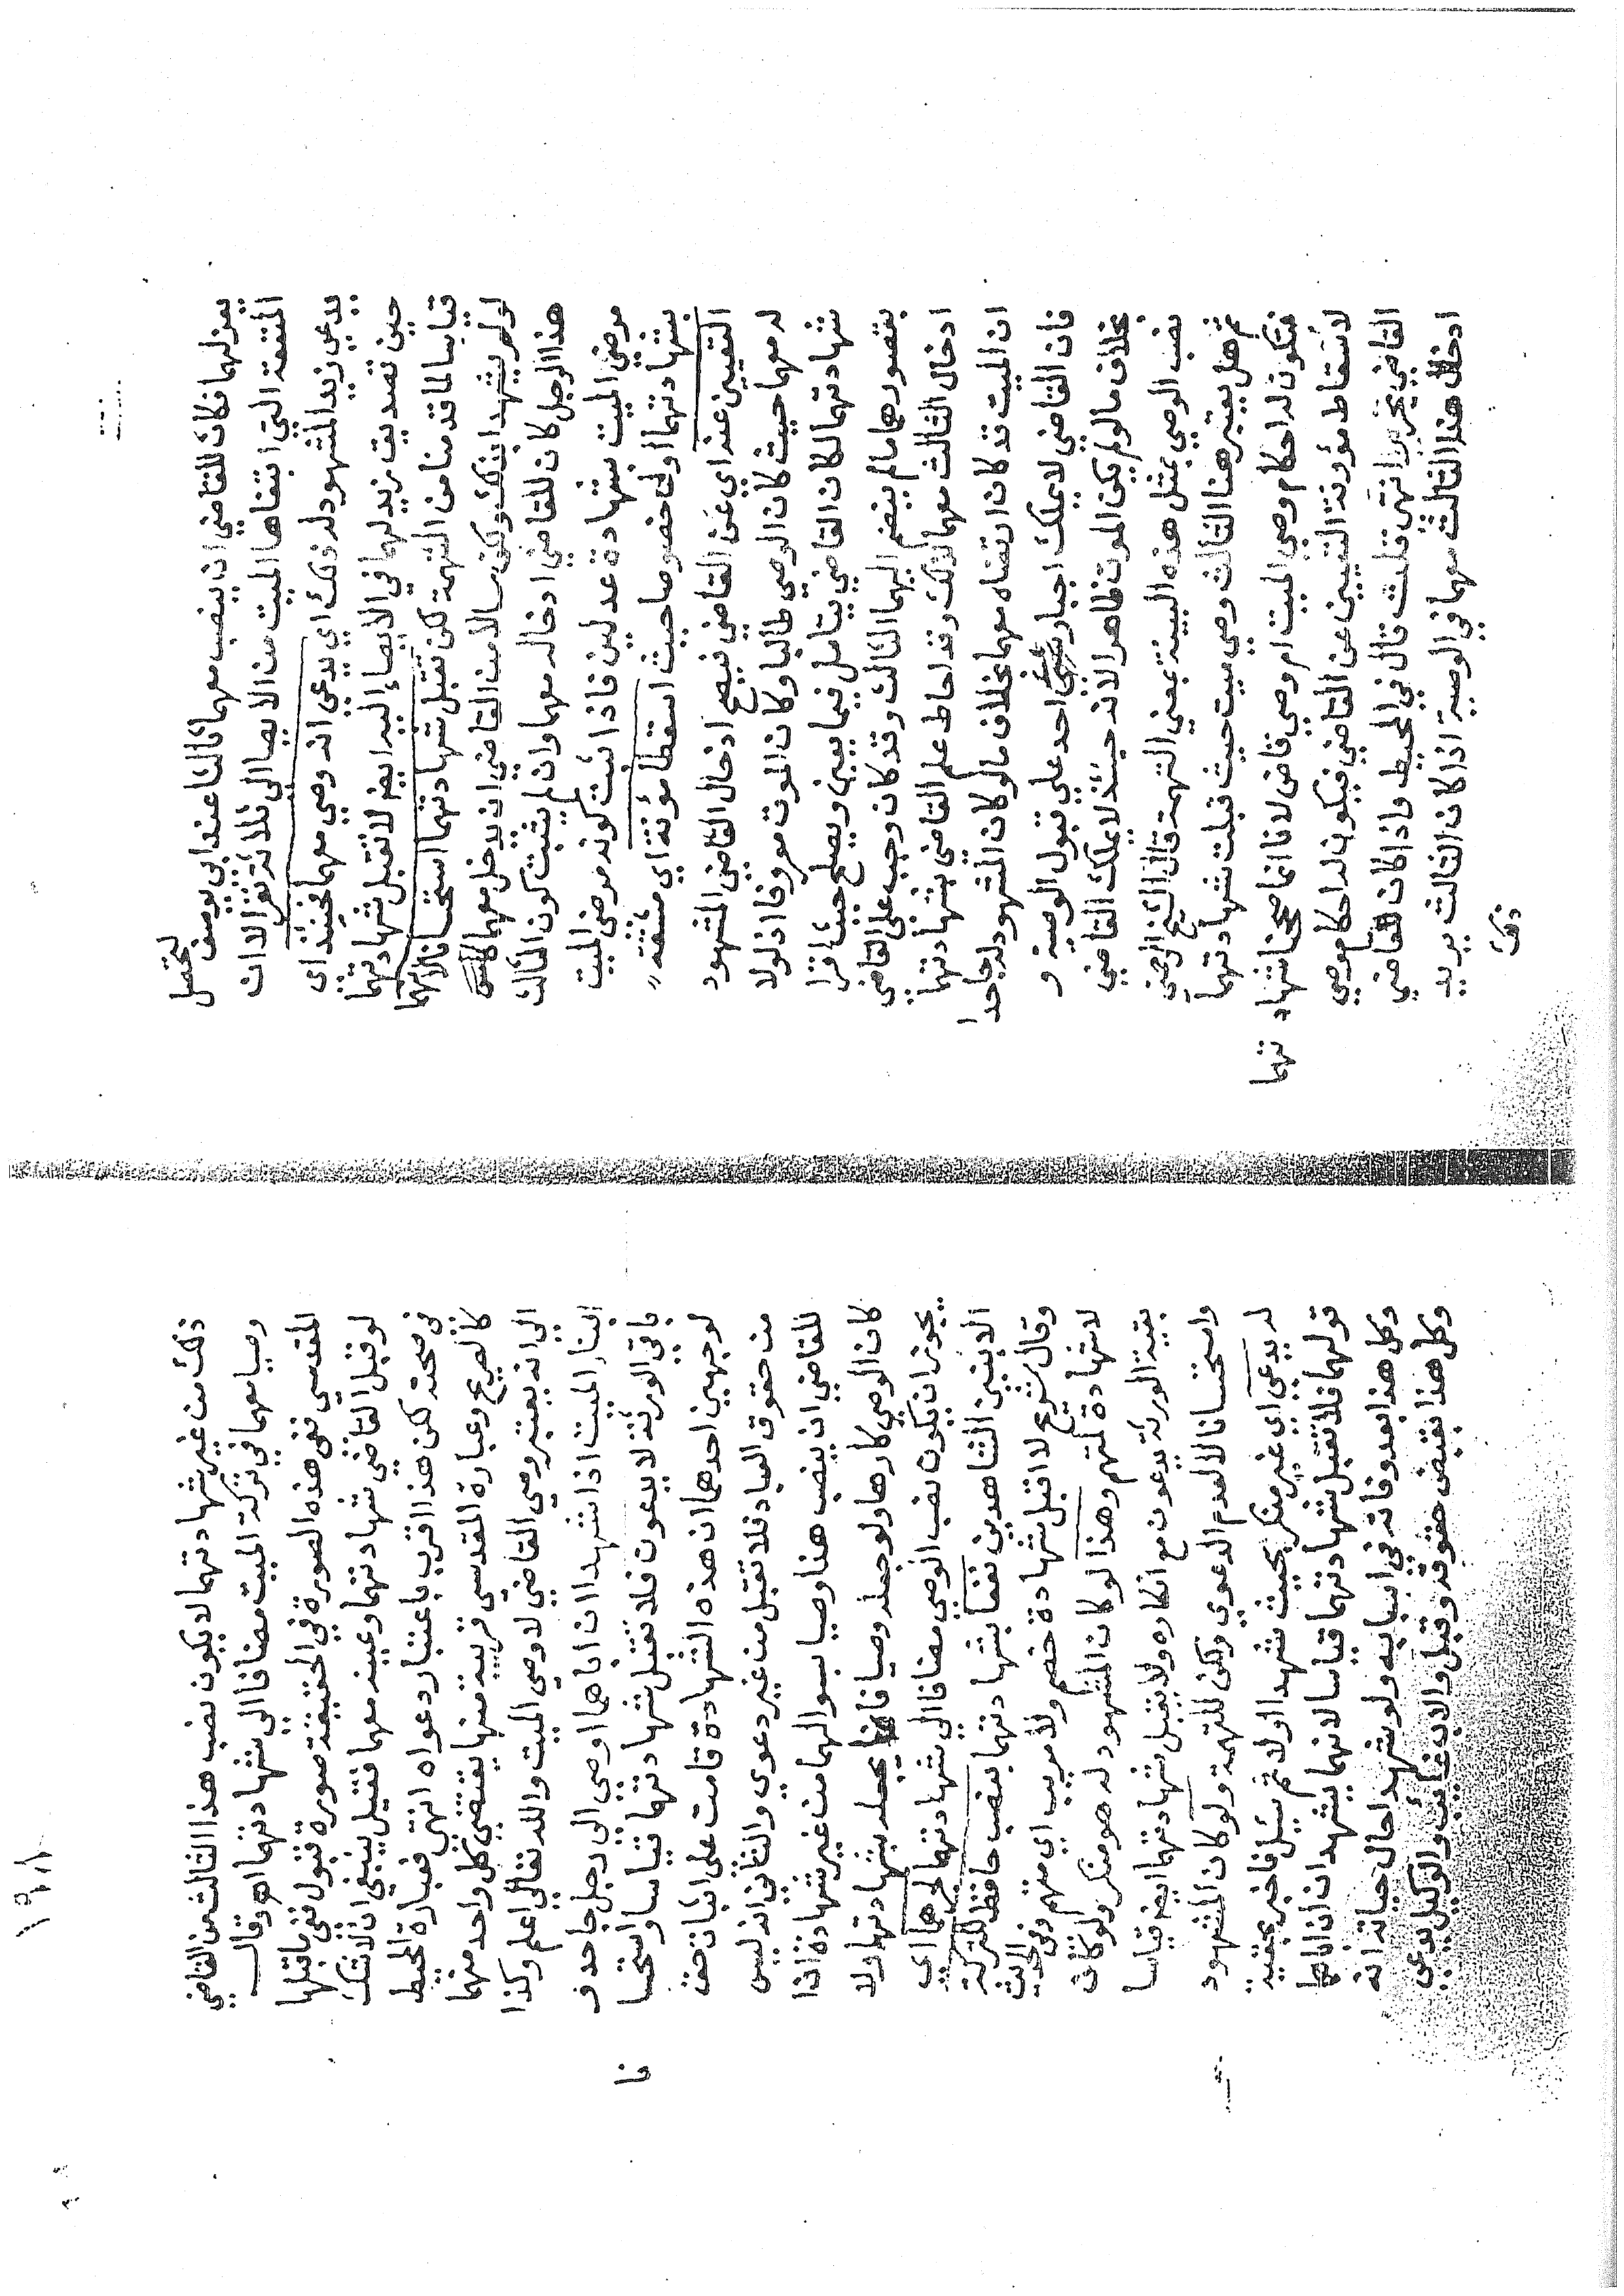 يعزلهما فكان للقاضي ان ينصب معهما ثالثا عند ابي يوسف لتحتمل
المشقة التي ابتغاها الميت من الايصا الى ثلاثة نفر الا ان
يدعي زيد المشهود له ذلك اي يدعي انه وصي معهما فحينئذ اي
حين تصديق زيد لهما في الايصاء اليه ايضا لا تقبل شهادتهما
قياسا لما قدمنا من التهمة لكن تقبل شهادتهما استحسانا لانهما
لو لم يشهدا بذلك ولكن سالا من القاضي ان يدخل معهما
هذا الرجل كان للقاضي ادخاله معهما وان لم يثبت كون الثالث
مرضي الميت بشهادة عدلين فاذا ثبت كونه مرضي الميت
بشهادتهما اولى خصوصا حيث اسقطا مؤنة اي مشقة
التعيين عنه اي عن القاضي فيصح ادخال القاضي المشهود
له معهما حيث كان الوصي طالبا وكان الموت معروفا اذ لولا
شهادتهما لكان القاضي يتامل فيما يعين ويصلح حيث اقرا
بقصورهما ما لم ينضم اليهما الثالث وقد كان وجب على القاضي
ادخال الثالث معهما لذلك وقد احاط علم القاضي بشهادتهما
ان الميت قد كان ارتضاه معهما بخلاف ما لو كان المشهود له جاحدا
فان القاضي لا يملك اجبار احد على قبول الوصية و
بخلاف ما لو لم يكن الموت ظاهرا لانه حينئذ لا يملك القاضي
نصب الوصي بمثل هذه البينة بمعني التهمة قال الشيخ الرضي
ثم هل يعتبر هنا الثالث وصي ميت حيث قبلت شهادتهما
فتكون له احكام وصي الميت ام وصي قاض لانا انما صححنا شهادتهما
لاسقاط مؤونة التعيين عن القاضي فيكون له احكام وصي
القاضي يحرر انتهى قلت قال في المحيط واذا كان القاضي
ادخل هذا الثالث معهما في الوصية اذا كان الثالث يريد
ذلك
ذلك من غير شهادتهما لا يكون نصب هذا الثالث من القاضي
وصيا معهما في تركة الميت مضافا الى شهادتهما اه وقال
المقدسي ففي هذه الصورة في الحقيقة صورة قبول نفي ما قبلها
لو قبل القاضي شهادتهما وعينه معهما فقيل ينبغي ان لا شك
في صحته لكن هذا اقرب باعتبار دعواه انتهى فعبارة المحيط
كالصريح وعبارة المقدسي قريبة منها يقتضي كل واحد منهما
الى انه يعتبر وصي القاضي لا وصي الميت والله تعالى اعلم وكذا
ابنا الميت اذا شهدا ان اباهما اوصى الى رجل جاحد و
باقي الورثة لا يدعون فلا تقبل شهادتهما قياسا واستحسا
نا
لوجهين احدهما ان هذه الشهادة قامت على اثبات حق
من حقوق العباد فلا تقبل من غير دعوي والثاني انه ليس
للقاضي ان ينصب هنا وصيا بسوالهما من غير شهادة اذا
كان الوصي كارها ولو جعله وصيا فانما يجعله بشهادتهما ولا
يجوز ان يكون نصب الوصي مضافا الى شهادتهما لجرهما اي
الابنين الشاهدين نفعا بشهادتهما بنصب حافظ للتركة
وقال شريح لا اقبل شهادة خصم ولا مريب اي متهم وفي الحديث
لا شهادة لمتهم وهذا لو كان المشهود له هو منكر ولو كانت
بقية الورثة يدعون مع انكاره ولا يقبل شهادتهما ايضا قياسا
واستحسانا لالعدم الدعوي ولكن للتهمة ولو كان المشهود
له يدعي اي غير منكر بحيث شهدا اولا ثم سئل فاخبر بحقية
قولهما فلا تقبل شهادتهما قياسا لانهما يشهدان ان اباهما
وكل هذا بعد وفاته في انيابيه ولو شهدا حال حياته انه
وكل هذا بقبض حقوقه وقبل والاب غايب والوكيل يدعي